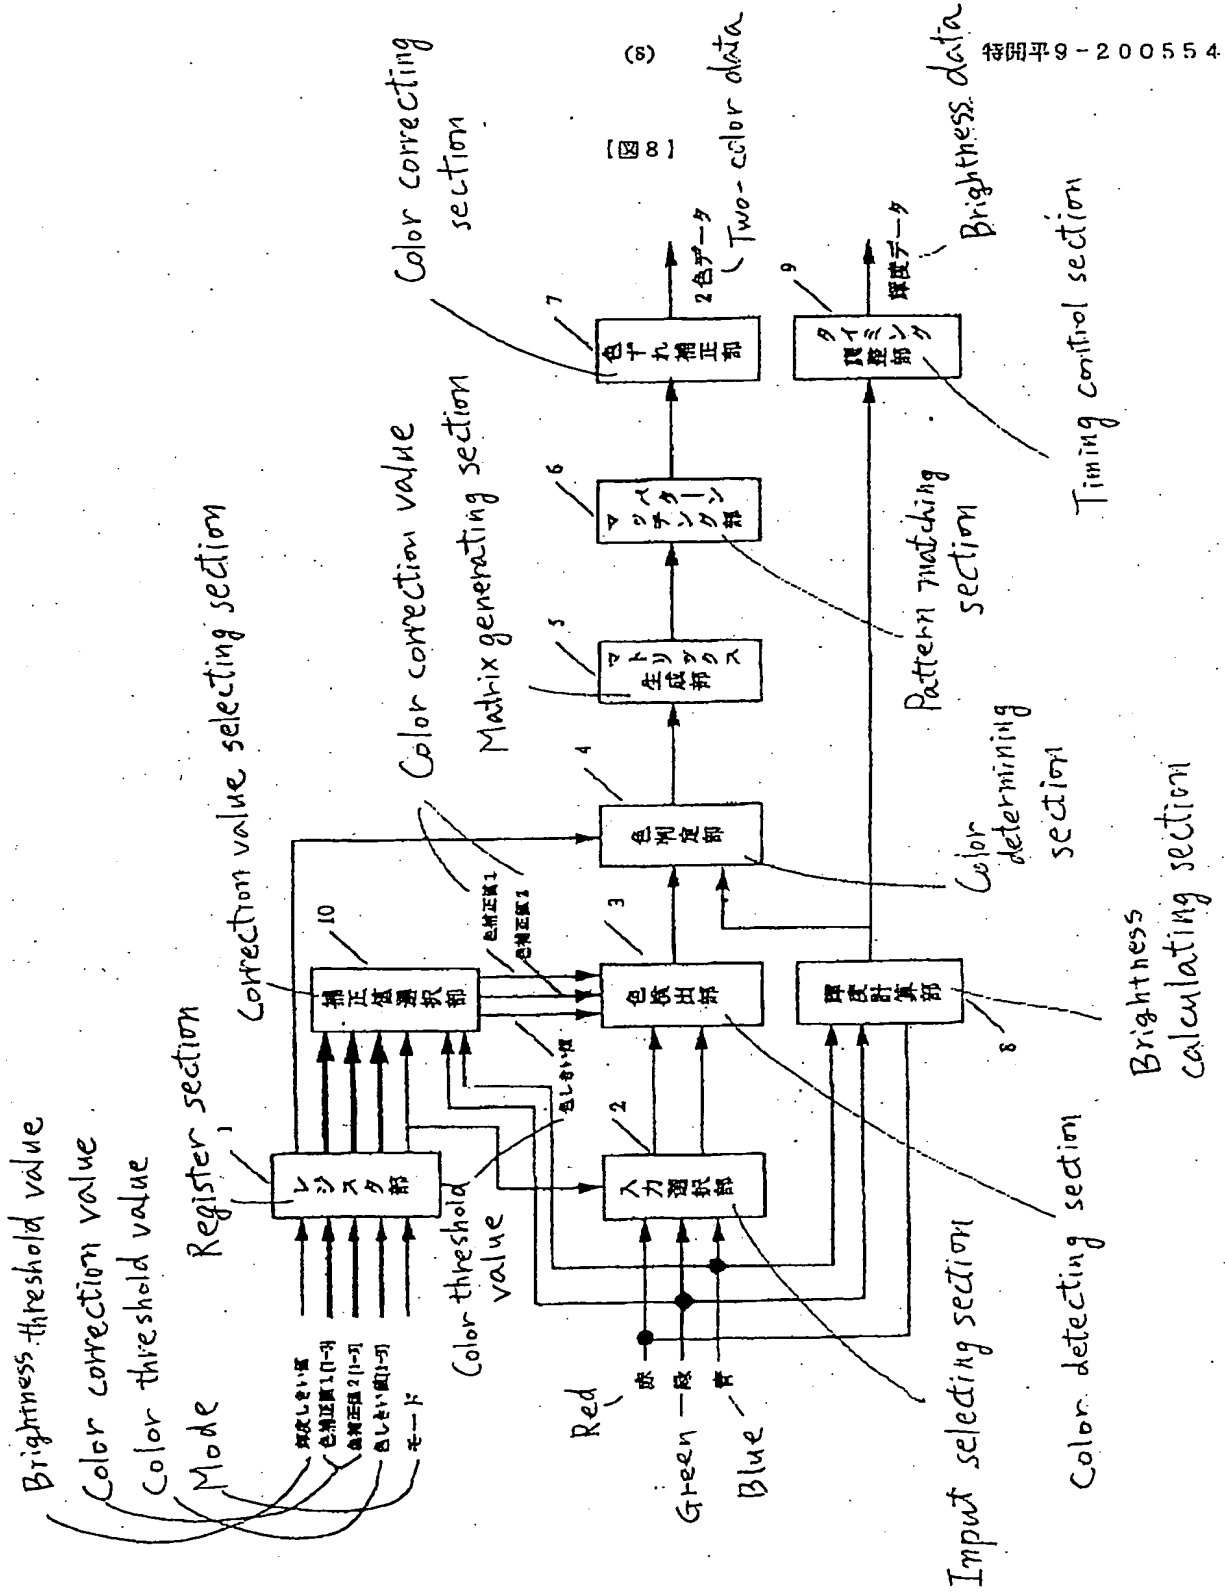 (8)
特開平9-200554
【図8】
Brightness threshold value
Color correction value
Color threshold value
Mode
輝度しきい値
色補正値1[1-3]
色補正値2[1-3]
色しきい値[1-3]
モード
Register section
1
レジスタ部
Correction value selecting section
10
補正値選択部
Color correction value
色補正値1
色補正値2
色しきい値
Color threshold
value
Red
赤
Green
緑
Blue
青
2
入力選択部
Input selecting section
3
色検出部
Color detecting section
4
色判定部
Color
determining
section
5
マトリックス
生成部
Matrix generating section
6
パターン
マッチング部
Pattern matching
section
7
色ずれ補正部
Color correcting
section
2色データ
Two-color data
8
輝度計算部
Brightness
calculating section
9
タイミング
調整部
Timing control section
輝度データ
Brightness data